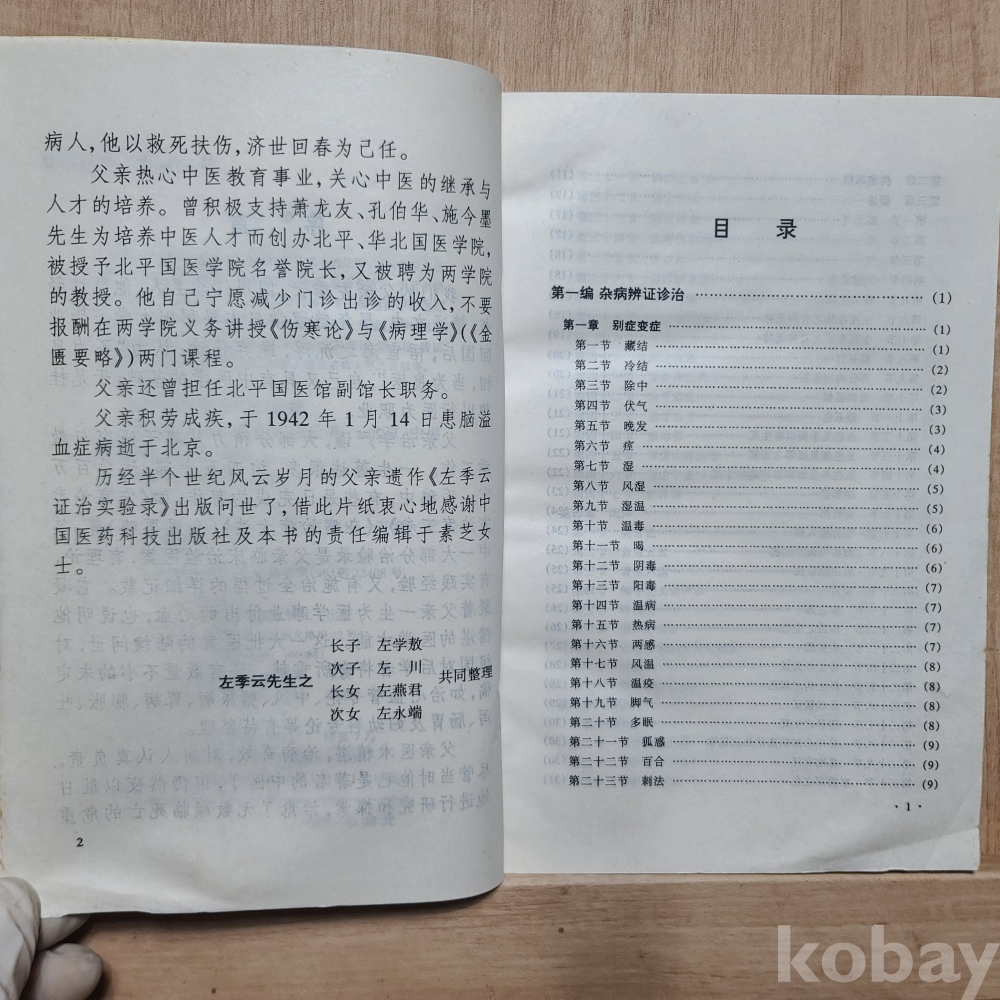 病人,他以救死扶伤,济世回春为己任。
父亲热心中医教育事业,关心中医的继承与
人才的培养。曾积极支持萧龙友、孔伯华、施今墨
先生为培养中医人才而创办北平、华北国医学院,
被授予北平国医学院名誉院长,又被聘为两学院
的教授。他自己宁愿减少门诊出诊的收入,不要
报酬在两学院义务讲授《伤寒论》与《病理学》(《金
匮要略》)两门课程。
父亲还曾担任北平国医馆副馆长职务。
父亲积劳成疾,于1942年1月14日患脑溢
血症病逝于北京。
历经半个世纪风云岁月的父亲遗作《左季云
证治实验录》出版问世了,借此片纸衷心地感谢中
国医药科技出版社及本书的责任编辑于素芝女
士。
左季云先生之
长子 左学敖
次子 左 川
长女 左燕君
次女 左永端
共同整理
2
目 录
第一编 杂病辨证诊治 …… (1)
第一章 别症变症 …… (1)
第一节 藏结 …… (1)
第二节 冷结 …… (2)
第三节 除中 …… (2)
第四节 伏气 …… (3)
第五节 晚发 …… (3)
第六节 痓 …… (4)
第七节 湿 …… (4)
第八节 风湿 …… (5)
第九节 湿温 …… (5)
第十节 温毒 …… (6)
第十一节 暍 …… (6)
第十二节 阴毒 …… (6)
第十三节 阳毒 …… (7)
第十四节 温病 …… (7)
第十五节 热病 …… (7)
第十六节 两感 …… (7)
第十七节 风温 …… (8)
第十八节 温疫 …… (8)
第十九节 脚气 …… (8)
第二十节 多眠 …… (8)
第二十一节 狐惑 …… (9)
第二十二节 百合 …… (9)
第二十三节 刺法 …… (9)
· 1 ·
kobay